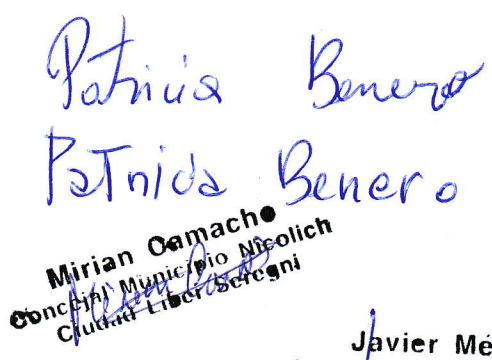 Patricia Benero
Patricia Benero
Mirian Camacho
Concejal Municipio Nicolich
Ciudad Liber Seregni
Javier Mé